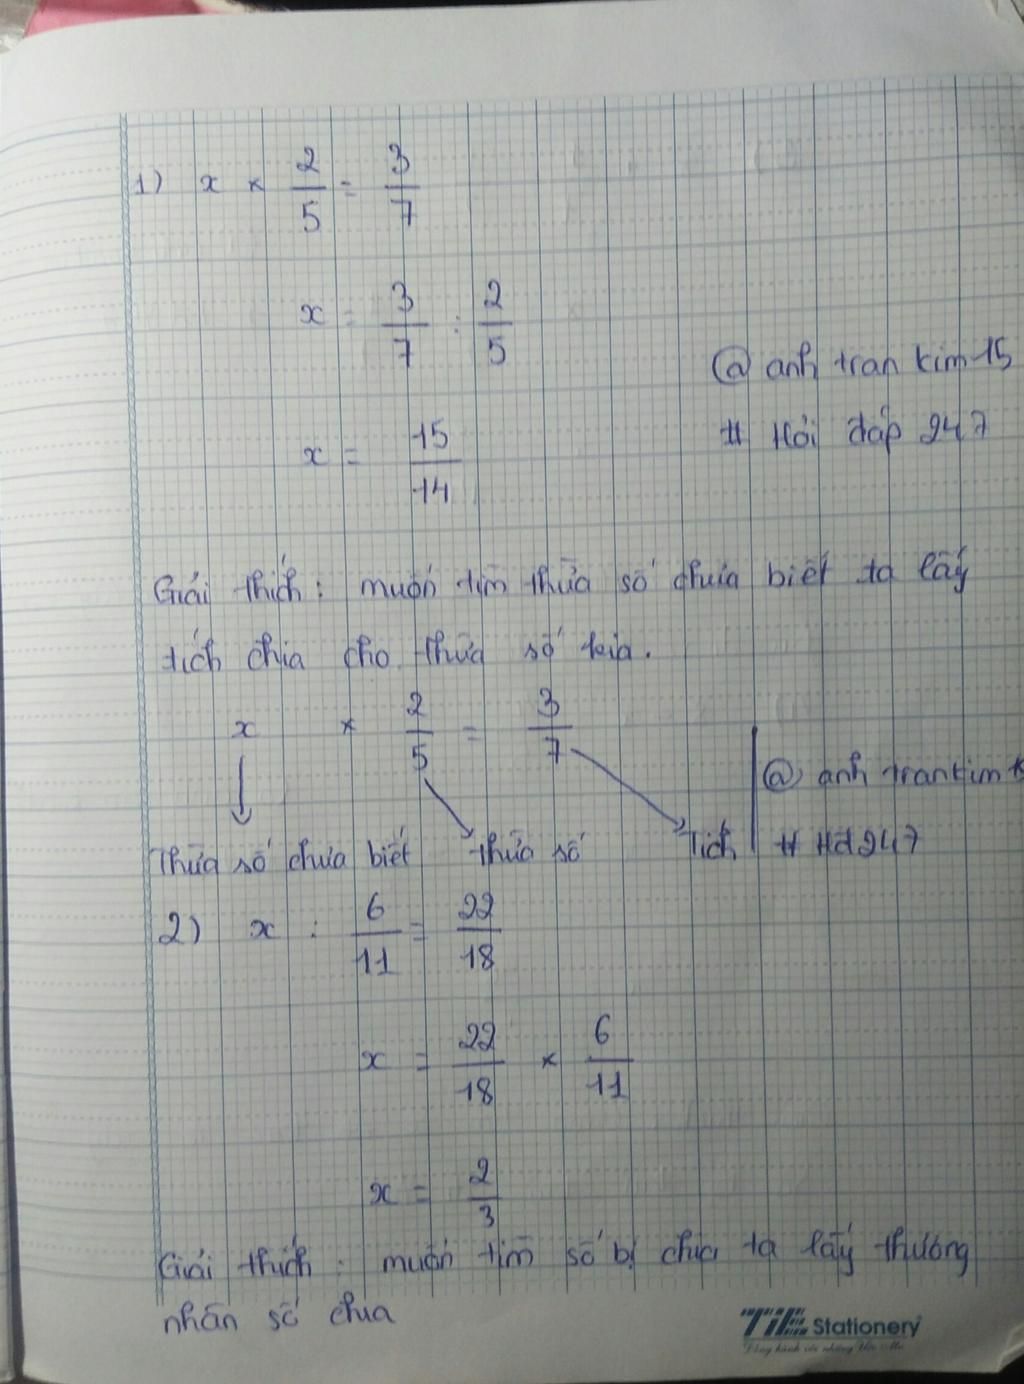 1) x × 2/5 = 3/7
x = 3/7 : 2/5
@ anh tran kim 15
x = 15/14
# Hỏi đáp 247
Giải thích : muốn tìm thừa số chưa biết ta lấy
tích chia cho thừa số kia.
x × 2/5 = 3/7
@ anh trankim
Thừa số chưa biết thừa số Tích # Hd247
2) x : 6/11 = 22/18
x = 22/18 × 6/11
x = 2/3
Giải thích : muốn tìm số bị chia ta lấy thương
nhân số chia
TiE Stationery